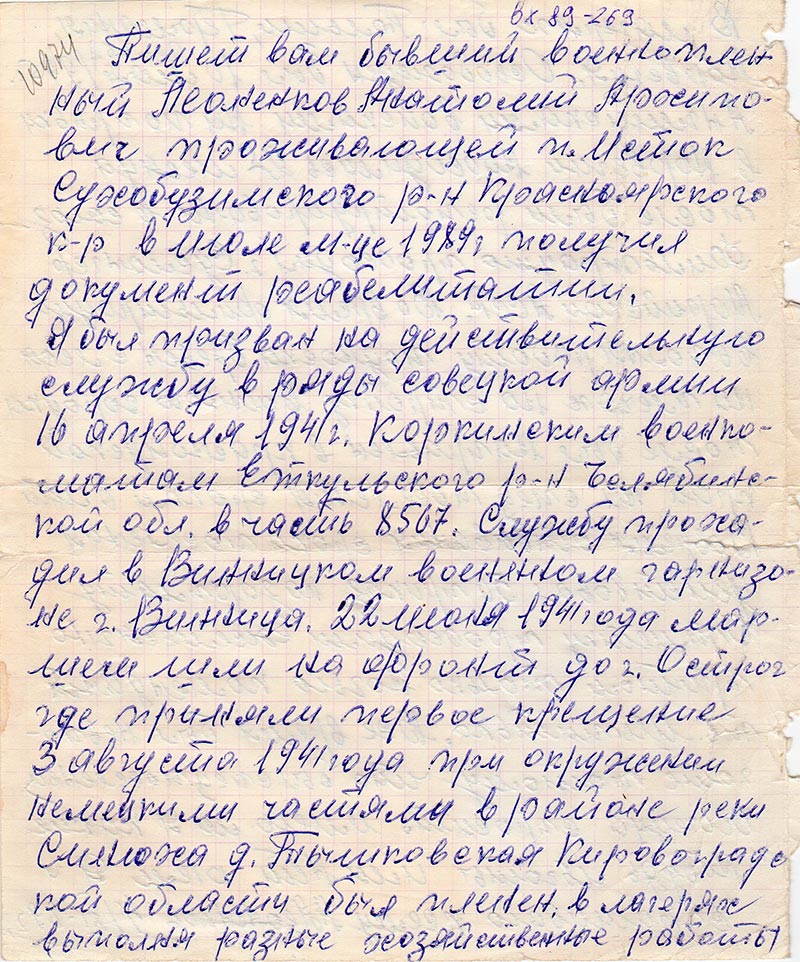 вх 89-269
10974
Пишет вам бывший военноплен
ный Леоненков Анатолий Архипо-
вич проживающей п. Исток
Сухобузимского р-н Красноярского
к-р в июле м-це 1989г получил
документ реабелитатии.
Я был призван на действительную
службу в ряды совецкой армии
16 апреля 1941г. Коркинским военко-
матам Еткульского р-н Челябинс-
кой обл. в часть 8567. Службу прохо-
дил в Винницком военном гарнизо-
не г. Винница. 22 июня 1941 года мар-
шем шли на фронт до г. Острог
где приняли первое крещение
3 августа 1941 года при окружении
немецкими частями в районе реки
Синюха д. Тышковская Кировоградс
кой области был пленен, в лагерях
выполнял разные хозяйственные работы